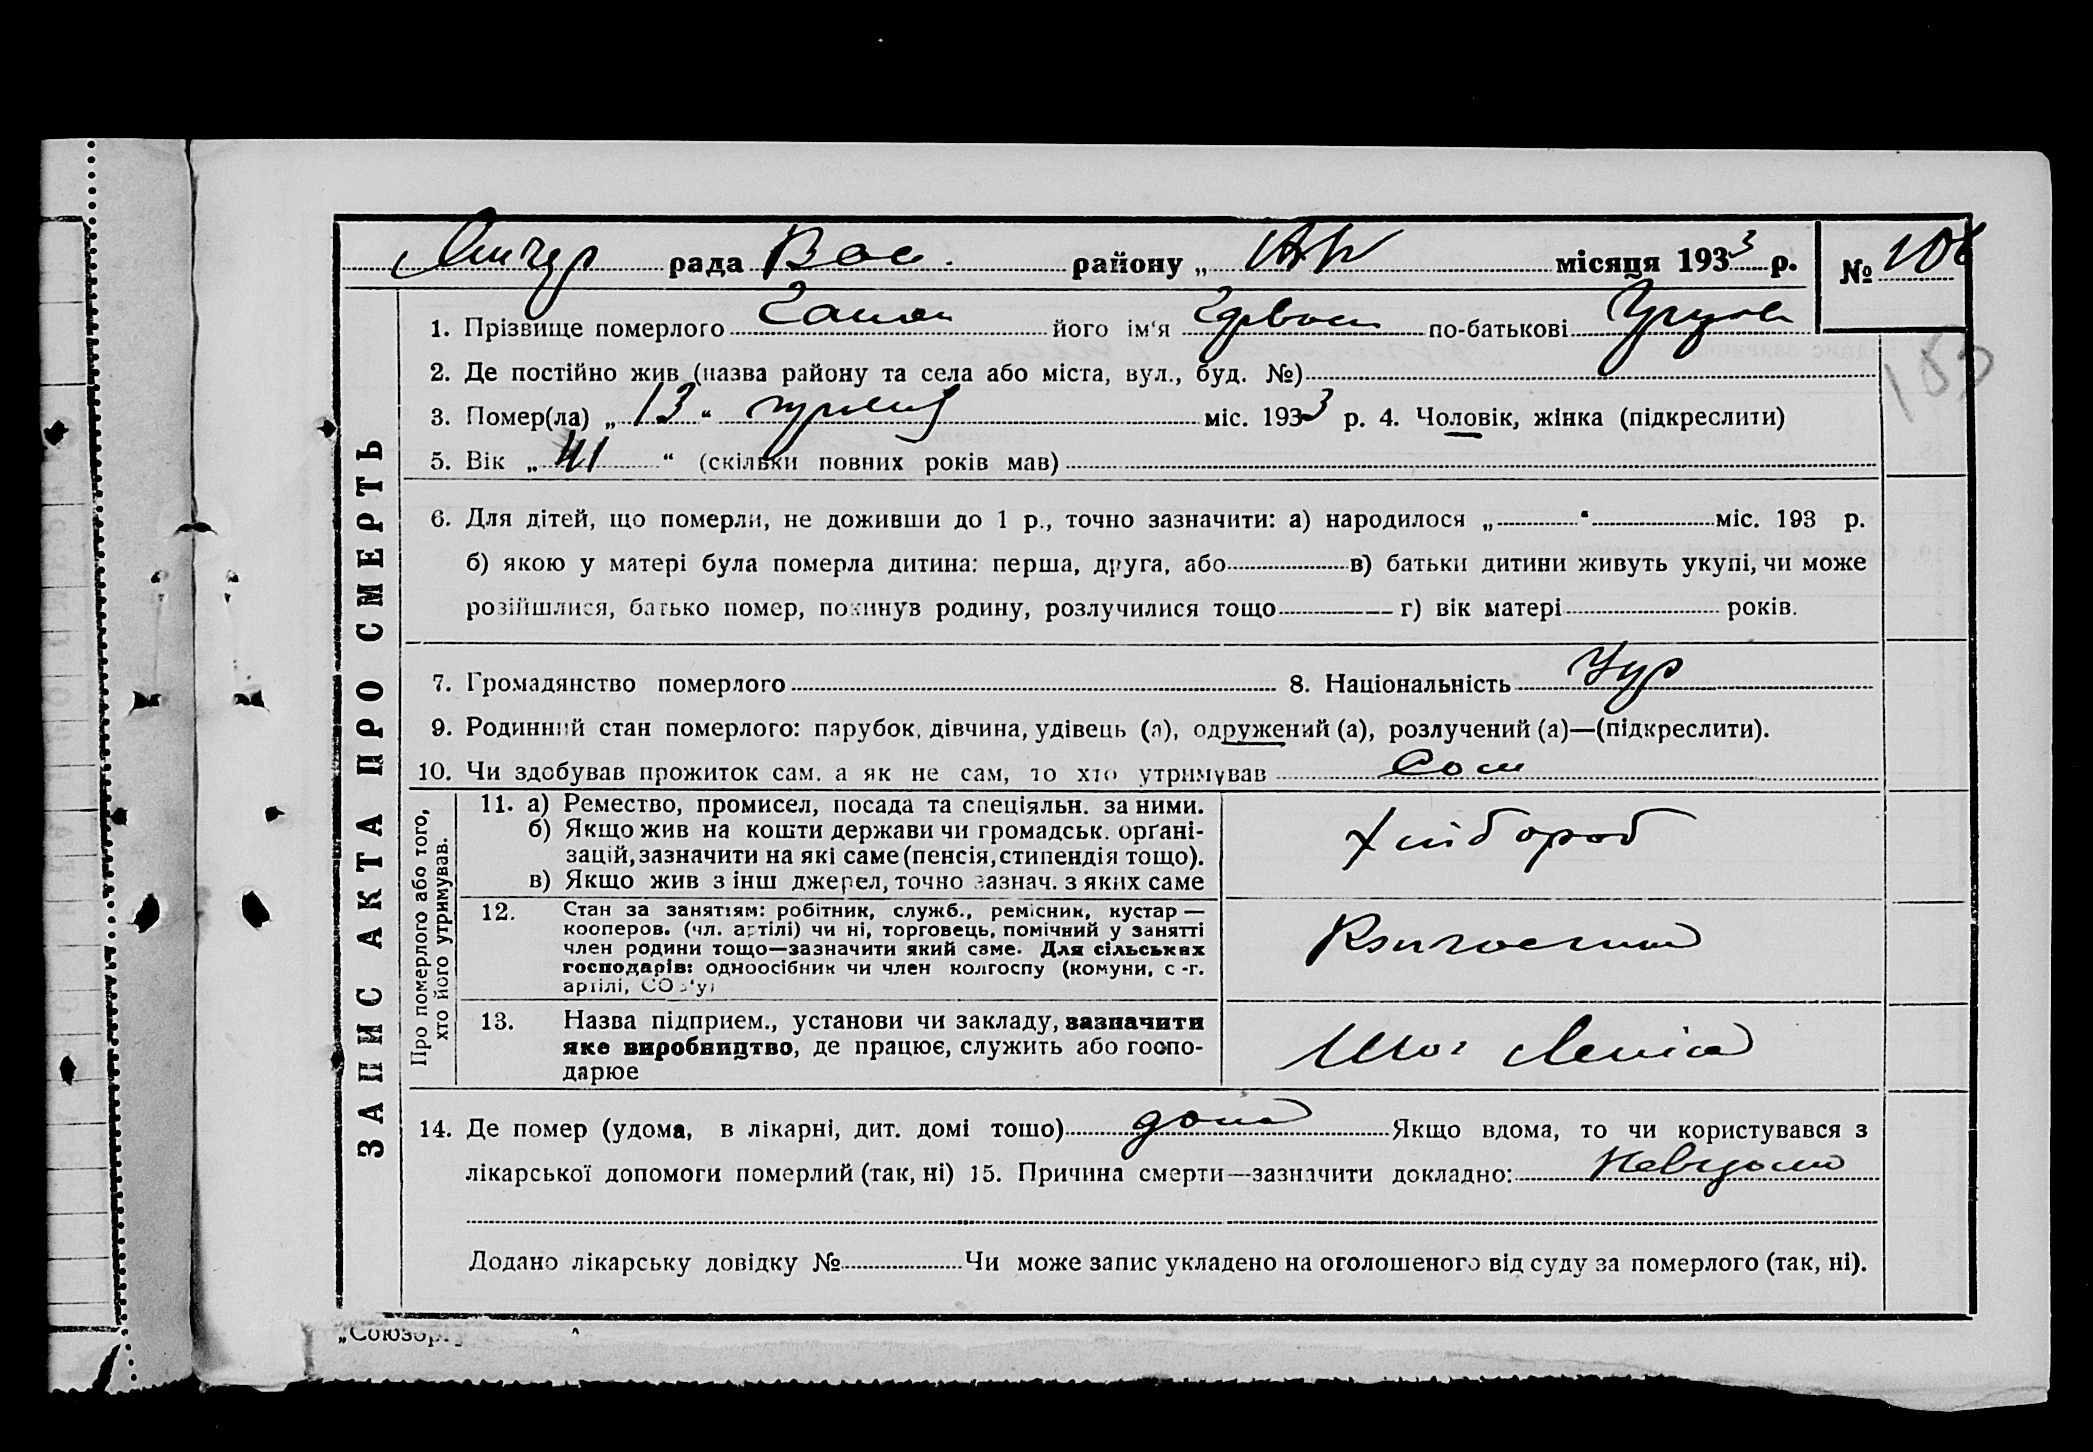 рада Вас. району „ місяця 1933 р. № 106
1. Прізвище померлого його ім'я по-батькові
2. Де постійно жив (назва району та села або міста, вул., буд. №)
3. Помер(ла) „13“ міс. 1933 р. 4. Чоловік, жінка (підкреслити)
5. Вік „41“ (скільки повних років мав)
6. Для дітей, що померли, не доживши до 1 р., точно зазначити: а) народилося „ “ міс. 193 р.
б) якою у матері була померла дитина: перша, друга, або в) батьки дитини живуть укупі, чи може
розійшлися, батько помер, покинув родину, розлучилися тощо г) вік матері років.
7. Громадянство померлого 8. Національність Укр
9. Родинний стан померлого: парубок, дівчина, удівець (а), одружений (а), розлучений (а)—(підкреслити).
10. Чи здобував прожиток сам. а як не сам, то хто утримував Сам
ЗАПИС АКТА ПРО СМЕРТЬ
Про померлого або того,
хто його утримував.
11. а) Ремество, промисел, посада та спеціяльн. за ними.
б) Якщо жив на кошти держави чи громадськ. орґані-
зацій, зазначити на які саме (пенсія, стипендія тощо).
в) Якщо жив з інш джерел, точно зазнач. з яких саме
Хлібороб
12. Стан за заняттям: робітник, служб., ремісник, кустар —
кооперов. (чл. артілі) чи ні, торговець, помічний у занятті
член родини тощо—зазначити який саме. Для сільських
господарів: одноосібник чи член колгоспу (комуни, с.-г.
артілі, СОЗ'у)
13. Назва підприєм., установи чи закладу, зазначити
яке виробництво, де працює, служить або госпо-
дарюе
Леніна
14. Де померь (удома, в лікарні, дит. домі тощо) дома Якщо вдома, то чи користувався з
лікарської допомоги померлий (так, ні) 15. Причина смерти—зазначити докладно: Невідомо
Додано лікарську довідку № Чи може запис укладено на оголошеного від суду за померлого (так, ні).